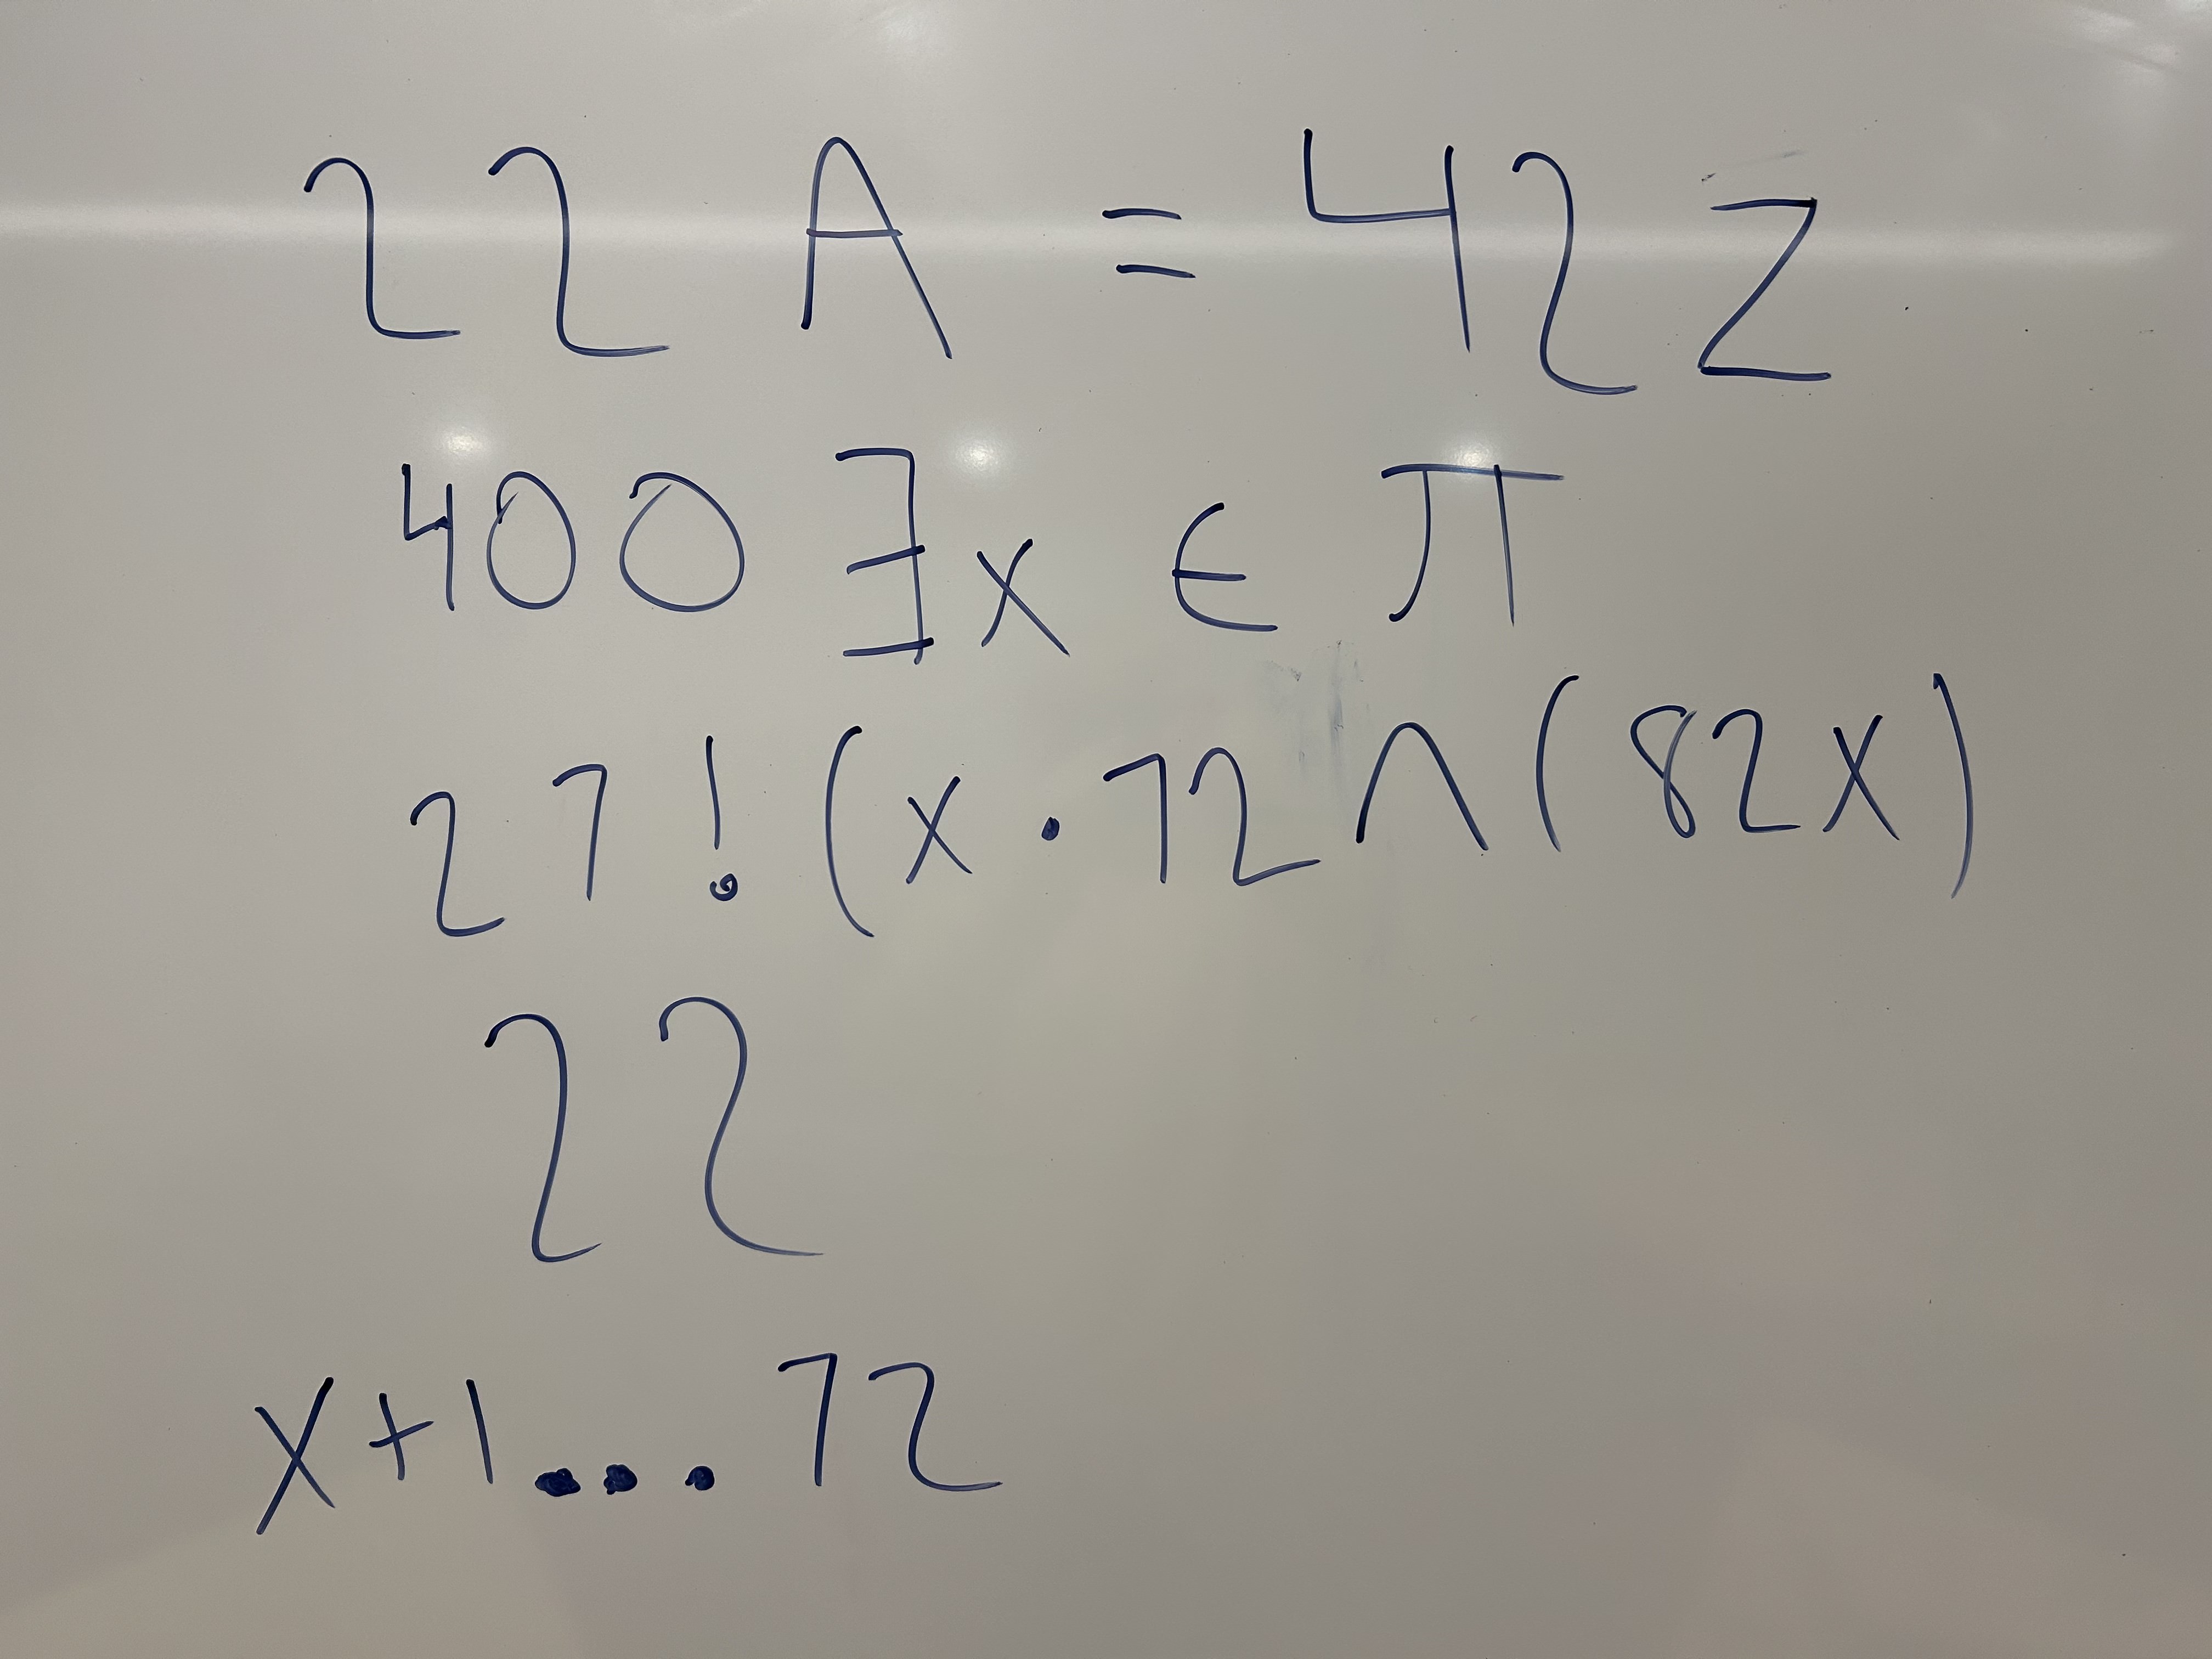 22 A = 42 Z
400 ∃x ∈ π
27! (x · 72 ∧ (82x)
22
x+1...72